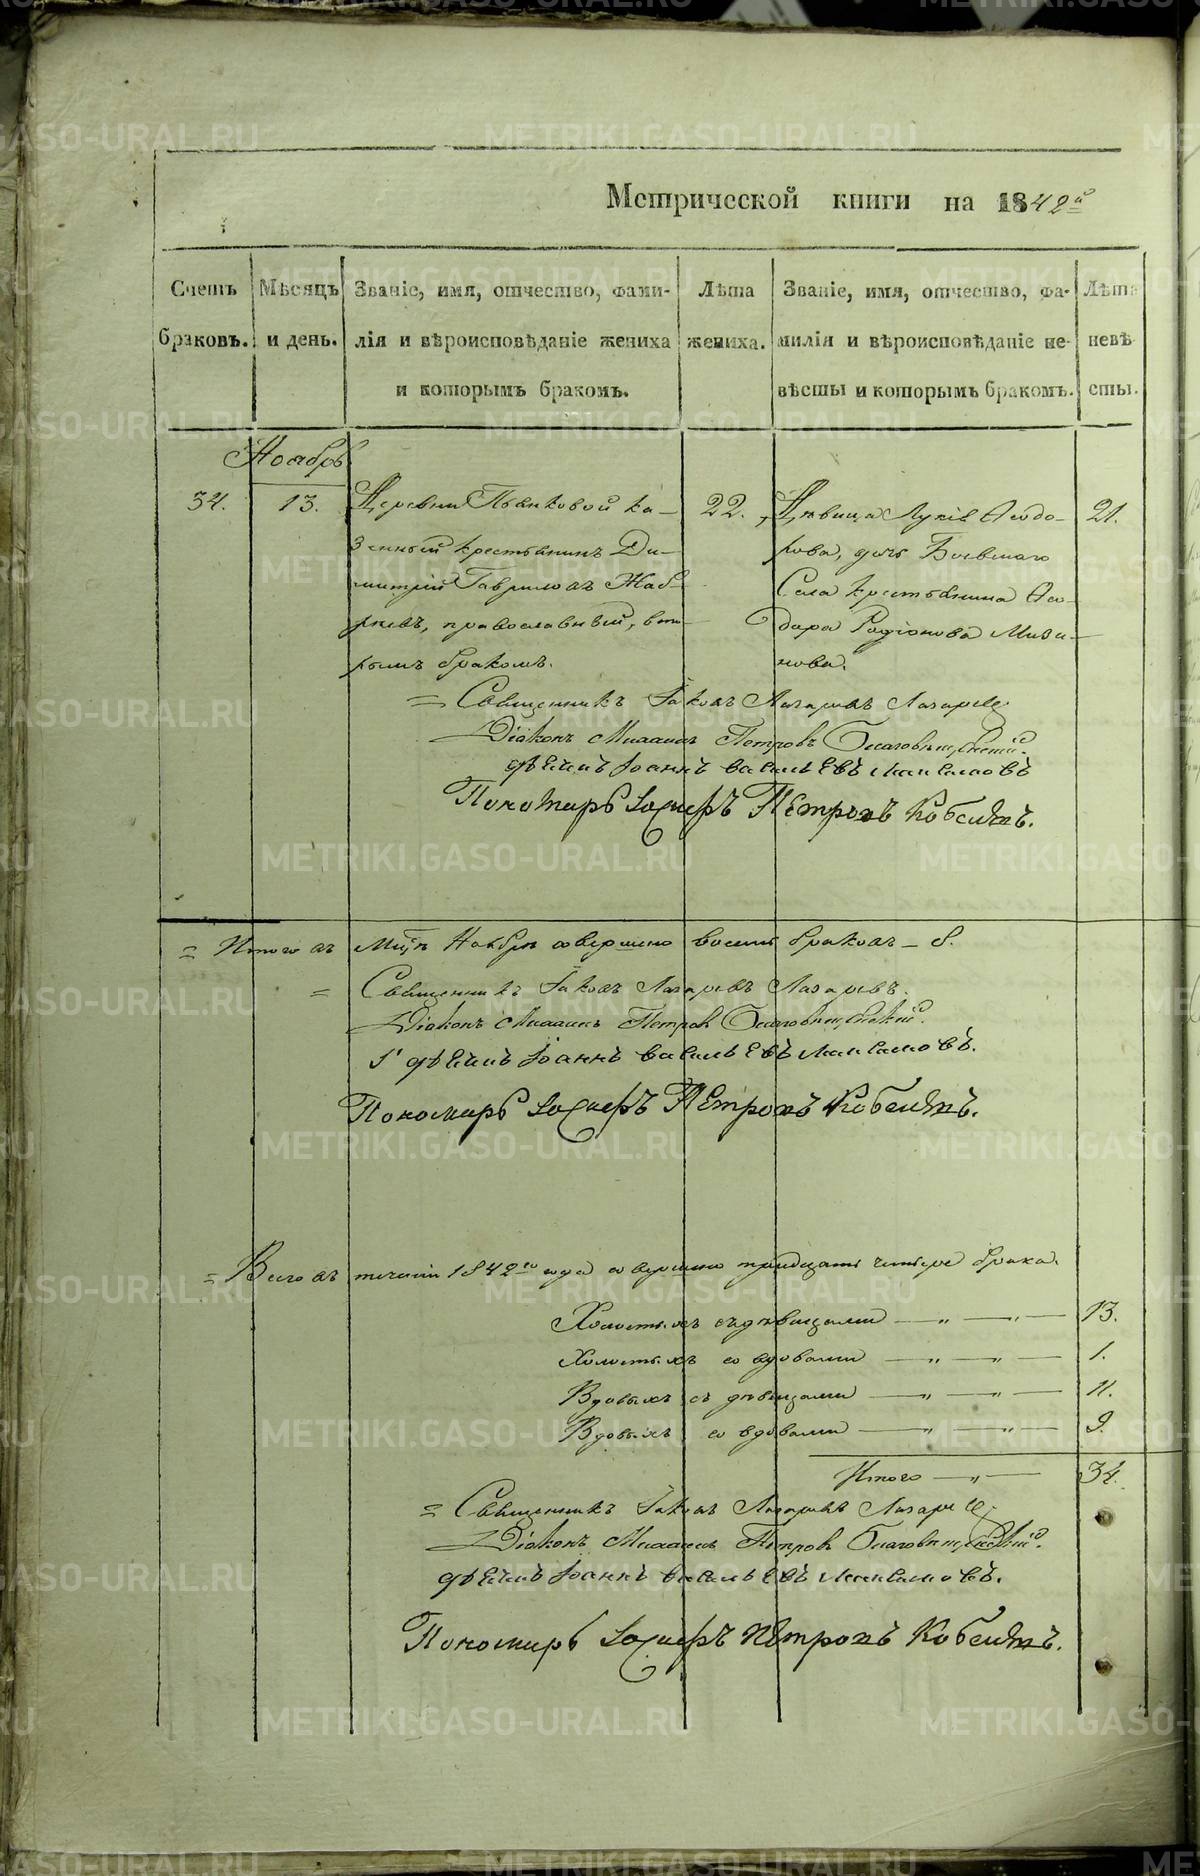 Метрической книги на 1842й
Счетъ браковъ.
Мѣсяцъ и день.
Званіе, имя, отчество, фами-
лія и вѣроисповѣданіе жениха
и которымъ бракомъ.
Лѣта
жениха.
Званіе, имя, отчество, фа-
милія и вѣроисповѣданіе не-
вѣсты и которымъ бракомъ.
Лѣта
невѣ
сты.
Ноябрь
34.
13.
Деревни Пьянковой ка-
зенный крестьянинъ Ди-
митрій Гавриловъ Жаб-
ревъ, православный, вто-
рымъ бракомъ.
22.
Дѣвица Лукія Ѳеодо-
рова, дочь Боевскаго
Села крестьянина Ѳео-
дора Родіонова Мизи-
нова.
21.
= Священникъ Іаковъ Лазаревъ Лазаревъ
Діаконъ Михаилъ Петровъ Благовѣщенскій.
дьячикъ Іоаннъ васильевъ максимовъ
Пономарь Іосифъ Петровъ Кобелѣвъ.
= Итого въ Мцѣ Ноябрѣ совершено восемь браковъ – 8.
= Священникъ Іаковъ Лазаревъ Лазаревъ.
Діаконъ Михаилъ Петровъ Благовѣщенскій.
дьячикъ Іоаннъ васильевъ максимовъ.
Пономарь Іосифъ Петровъ
= Всего въ теченіи 1842го года совершено тридцать четыре брака.
Холостыхъ съ дѣвицами — „ — „ — 13.
Холостыхъ со вдовами — „ — „ — 1.
Вдовыхъ съ дѣвицами — „ — „ — 11.
Вдовыхъ со вдовами — „ — „ — 9.
Итого — „ — 34.
= Священникъ Іаковъ Лазаревъ Лазаревъ
Діаконъ Михаилъ Петровъ Благовѣщенскій.
дьячикъ Іоаннъ васильевъ максимовъ.
Пономарь Іосифъ Петровъ
METRIKI.GASO-URAL.RU